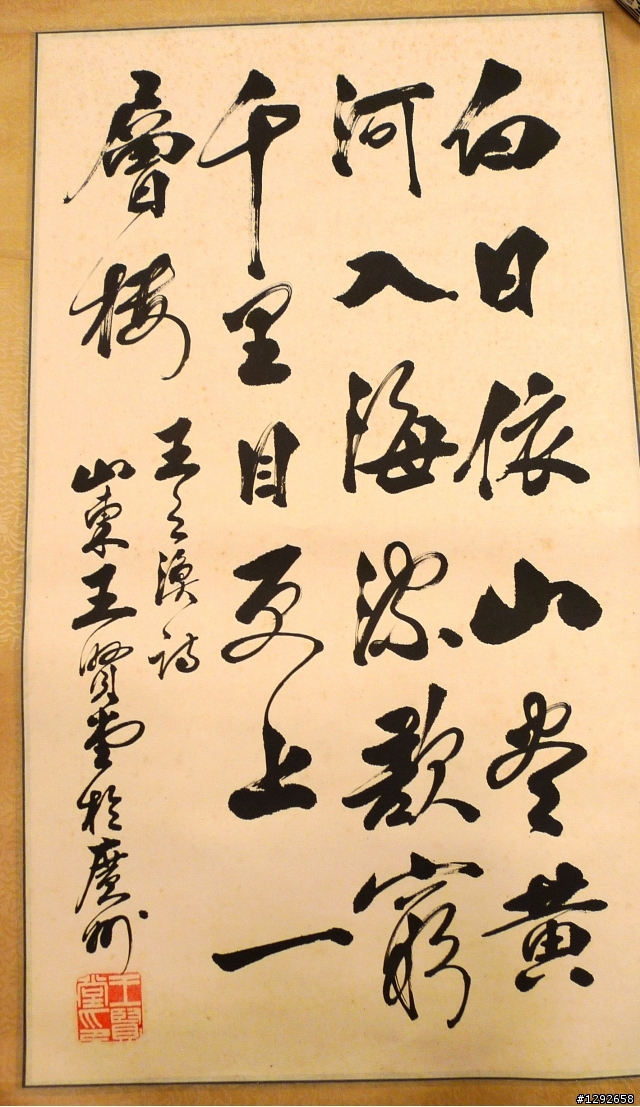 白日依山尽黄
河入海流欲穷
千里目更上一
層楼
王之渙诗
山東王賢堂於廣州
王賢堂印
#1292658